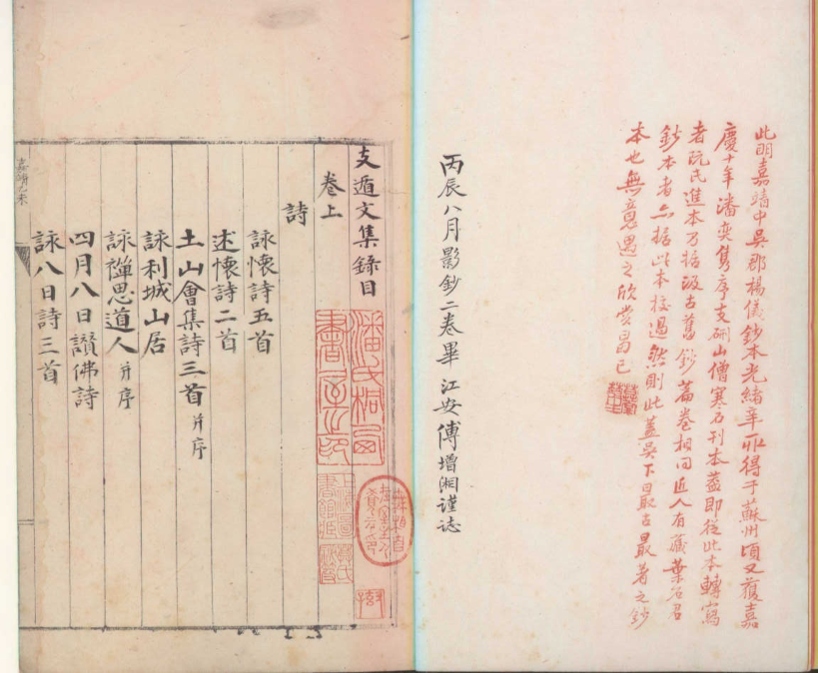 此明嘉靖中吳郡楊儀鈔本光緒辛丑得于蘇州頃又獲嘉
慶十年潘奕雋序支硎山僧寒石刊本蓋即從此本轉寫
者阮氏進本乃據汲古舊鈔篇卷相同近人有藏葉石君
鈔本者亦據此本校過然則此蓋吳下日最古最著之鈔
本也無意遇之欣賞曷已
丙辰八月影鈔二卷畢江安傅增湘謹誌
支遁文集錄目
卷上
詩
詠懷詩五首
述懷詩二首
土山會集詩三首并序
詠利城山居
詠禪思道人并序
四月八日讚佛詩
詠八日詩三首